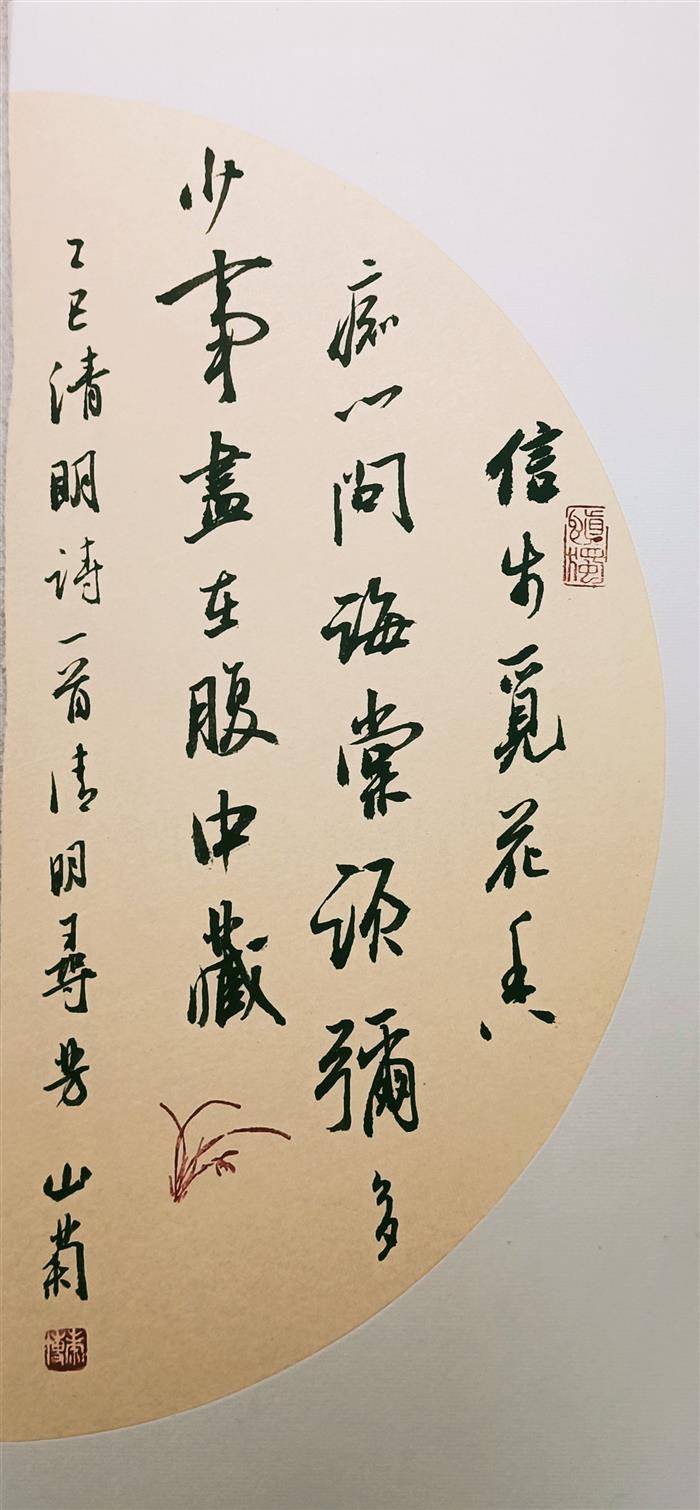 信步覓花香
痴心問海棠須彌多
少事盡在腹中藏
乙巳清明詩一首清明尋芳 山